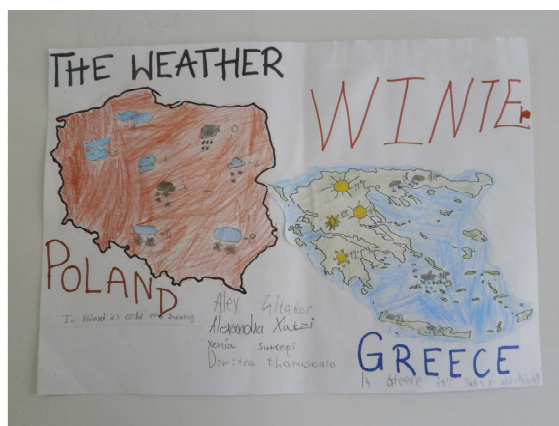 THE WEATHER
WINTER
POLAND
In Poland is cold and snowing
Alex
Alexandra Xatzi
xenia sutregi
Dimitra
GREECE
In Greece it's